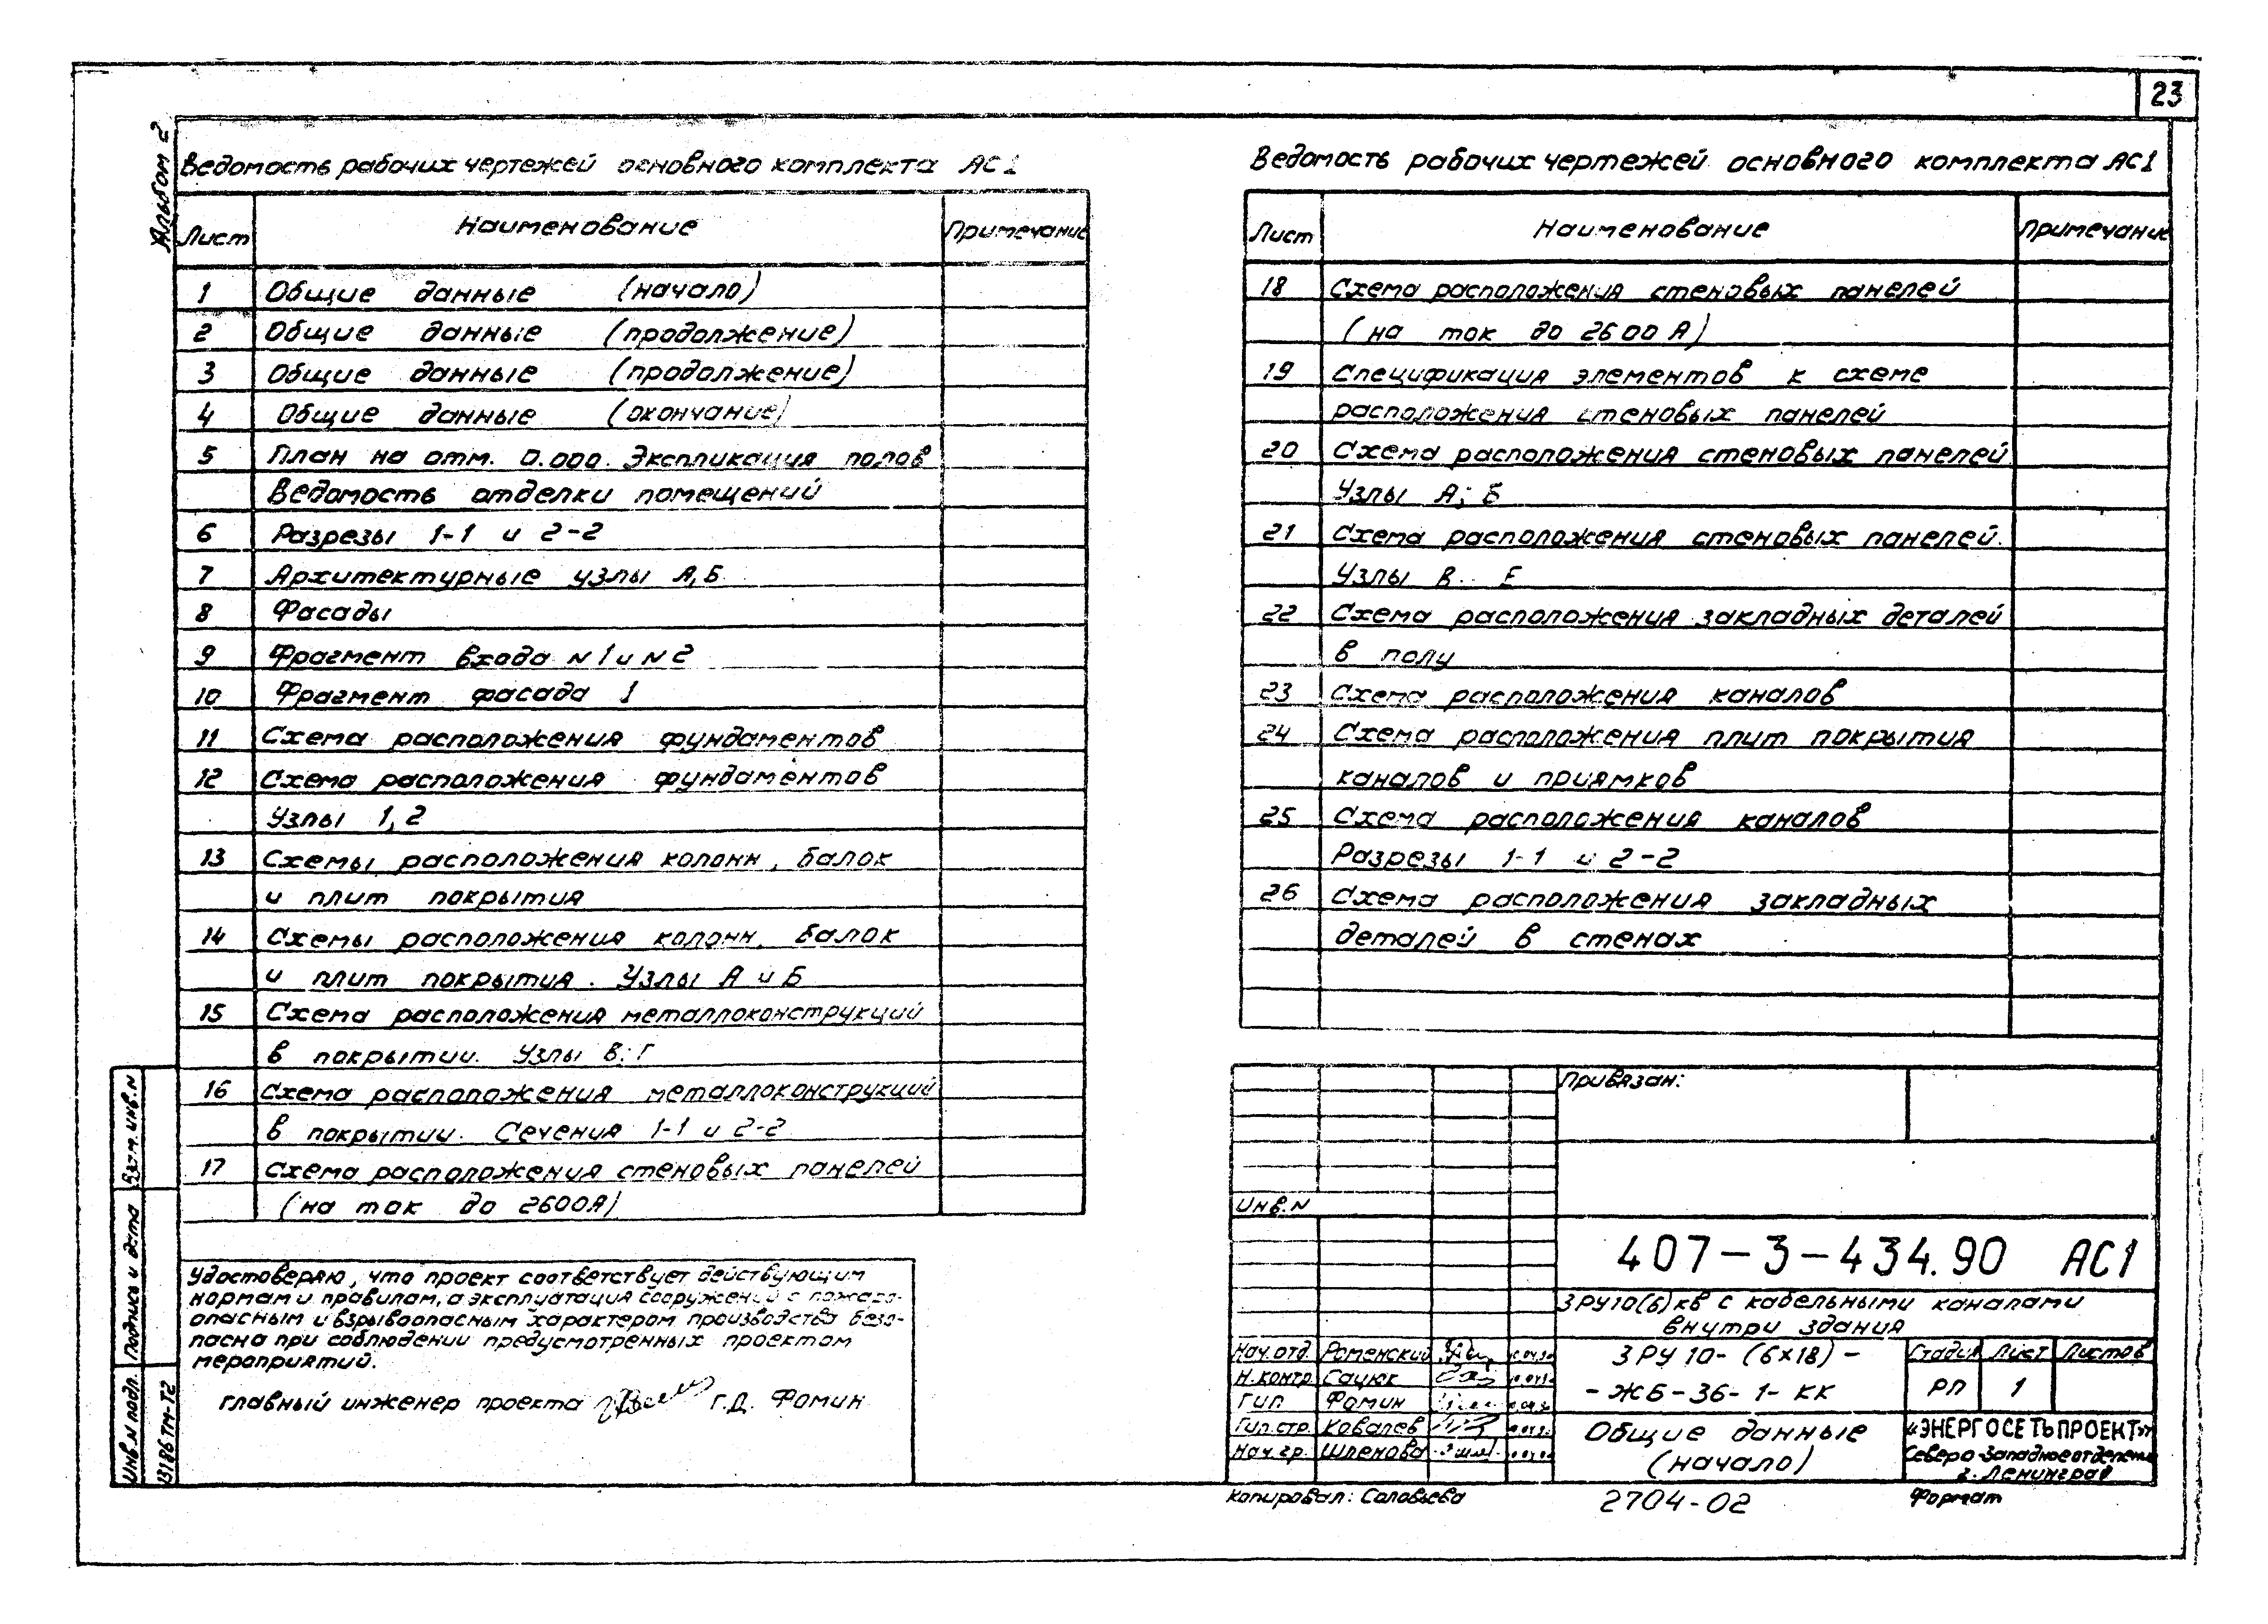 23
Альбом 2
Ведомость рабочих чертежей основного комплекта АС1
Лист Наименование Примечание
1 Общие данные (начало)
2 Общие данные (продолжение)
3 Общие данные (продолжение)
4 Общие данные (окончание)
5 План на отм. 0.000. Экспликация полов
Ведомость отделки помещений
6 Разрезы 1-1 и 2-2
7 Архитектурные узлы А,Б
8 Фасады
9 Фрагмент входа N1 и N2
10 Фрагмент фасада 1
11 Схема расположения фундаментов
12 Схема расположения фундаментов
Узлы 1,2
13 Схемы расположения колонн, балок
и плит покрытия
14 Схемы расположения колонн, балок
и плит покрытия. Узлы А и Б
15 Схема расположения металлоконструкций
в покрытии. Узлы В; Г
16 Схема расположения металлоконструкций
в покрытии. Сечения 1-1 и 2-2
17 Схема расположения стеновых панелей
(на ток до 2600А)
Ведомость рабочих чертежей основного комплекта АС1
Лист Наименование Примечание
18 Схема расположения стеновых панелей
(на ток до 2600 А)
19 Спецификация элементов к схеме
расположения стеновых панелей
20 Схема расположения стеновых панелей
Узлы А; Б
21 Схема расположения стеновых панелей.
Узлы В.. Е
22 Схема расположения закладных деталей
в полу
23 Схема расположения каналов
24 Схема расположения плит покрытия
каналов и приямков
25 Схема расположения каналов
Разрезы 1-1 и 2-2
26 Схема расположения закладных
деталей в стенах
Удостоверяю, что проект соответствует действующим
нормам и правилам, а эксплуатация сооружений с пожаро-
опасным и взрывоопасным характером производства безо-
пасна при соблюдении предусмотренных проектом
мероприятий.
Главный инженер проекта Г.Д. Фомин
Взам. инв. N
Подпись и дата
Инв. N подл.
13186ТМ-Т2
Привязан:
Инв. N
407-3-434.90 АС1
ЗРУ10(6)кВ с кабельными каналами
внутри здания
Нач. отд. Роменский
Н. контр Сацюк
ГИП Фомин
Гип. стр. Ковалев
Нач. гр. Шленова
ЗРУ 10- (6х18) -
- ЖБ - 36 - 1 - КК
Стадия Лист Листов
РП 1
Общие данные
(начало)
«ЭНЕРГОСЕТЬПРОЕКТ»
Северо-Западное отделение
г. Ленинград
Копировал: Соловьева
2704-02
Формат